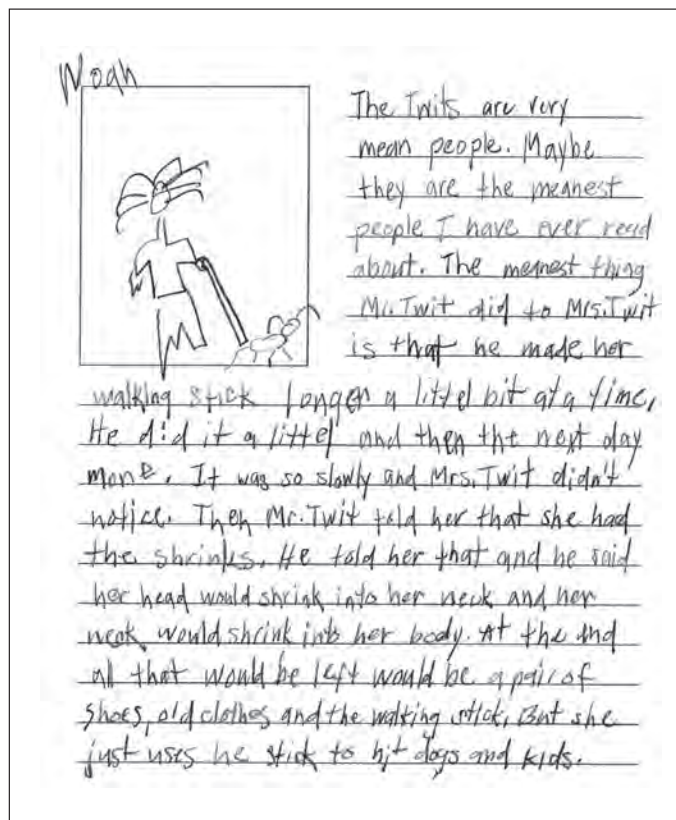 Noah
The Twits are very
mean people. Maybe
they are the meanest
people I have ever read
about. The meanest thing
Mr. Twit did to Mrs. Twit
is that he made her
walking stick longer a littel bit at a time,
He did it a littel and then the next day
more. It was so slowly and Mrs. Twit didn't
notice. Then Mr. Twit told her that she had
the shrinks. He told her that and he said
her head would shrink into her neck and her
neck would shrink into her body. At the end
all that would be left would be a pair of
shoes, old clothes and the walking stick. But she
just uses he stick to hit dogs and kids.